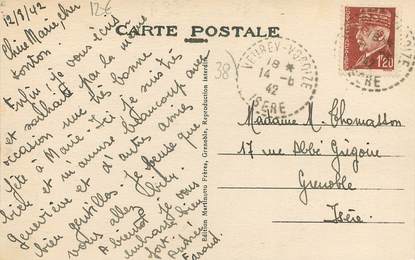 12/8/42
12€
Chère Marie, cher
tonton.
Enfin! je vous écris
et souhaite par la même
occasion une très bonne
fête à Marie. Ici je suis très
bien et m'amuse beaucoup avec
Geneviève et d'autres amies
bien gentilles. Je pense que
vous allez bien.
A bientôt je vous
embrasse bien
fort.
CARTE POSTALE
38
Edition Martinotto Frères, Grenoble, Reproduction interdite
VEUREY-VOROIZE
18 *
14 -8
42
ISÈRE
1F20
ISÈRE
Madame M. Thomasson
17 rue Abbé Grégoire
Grenoble
Isère.